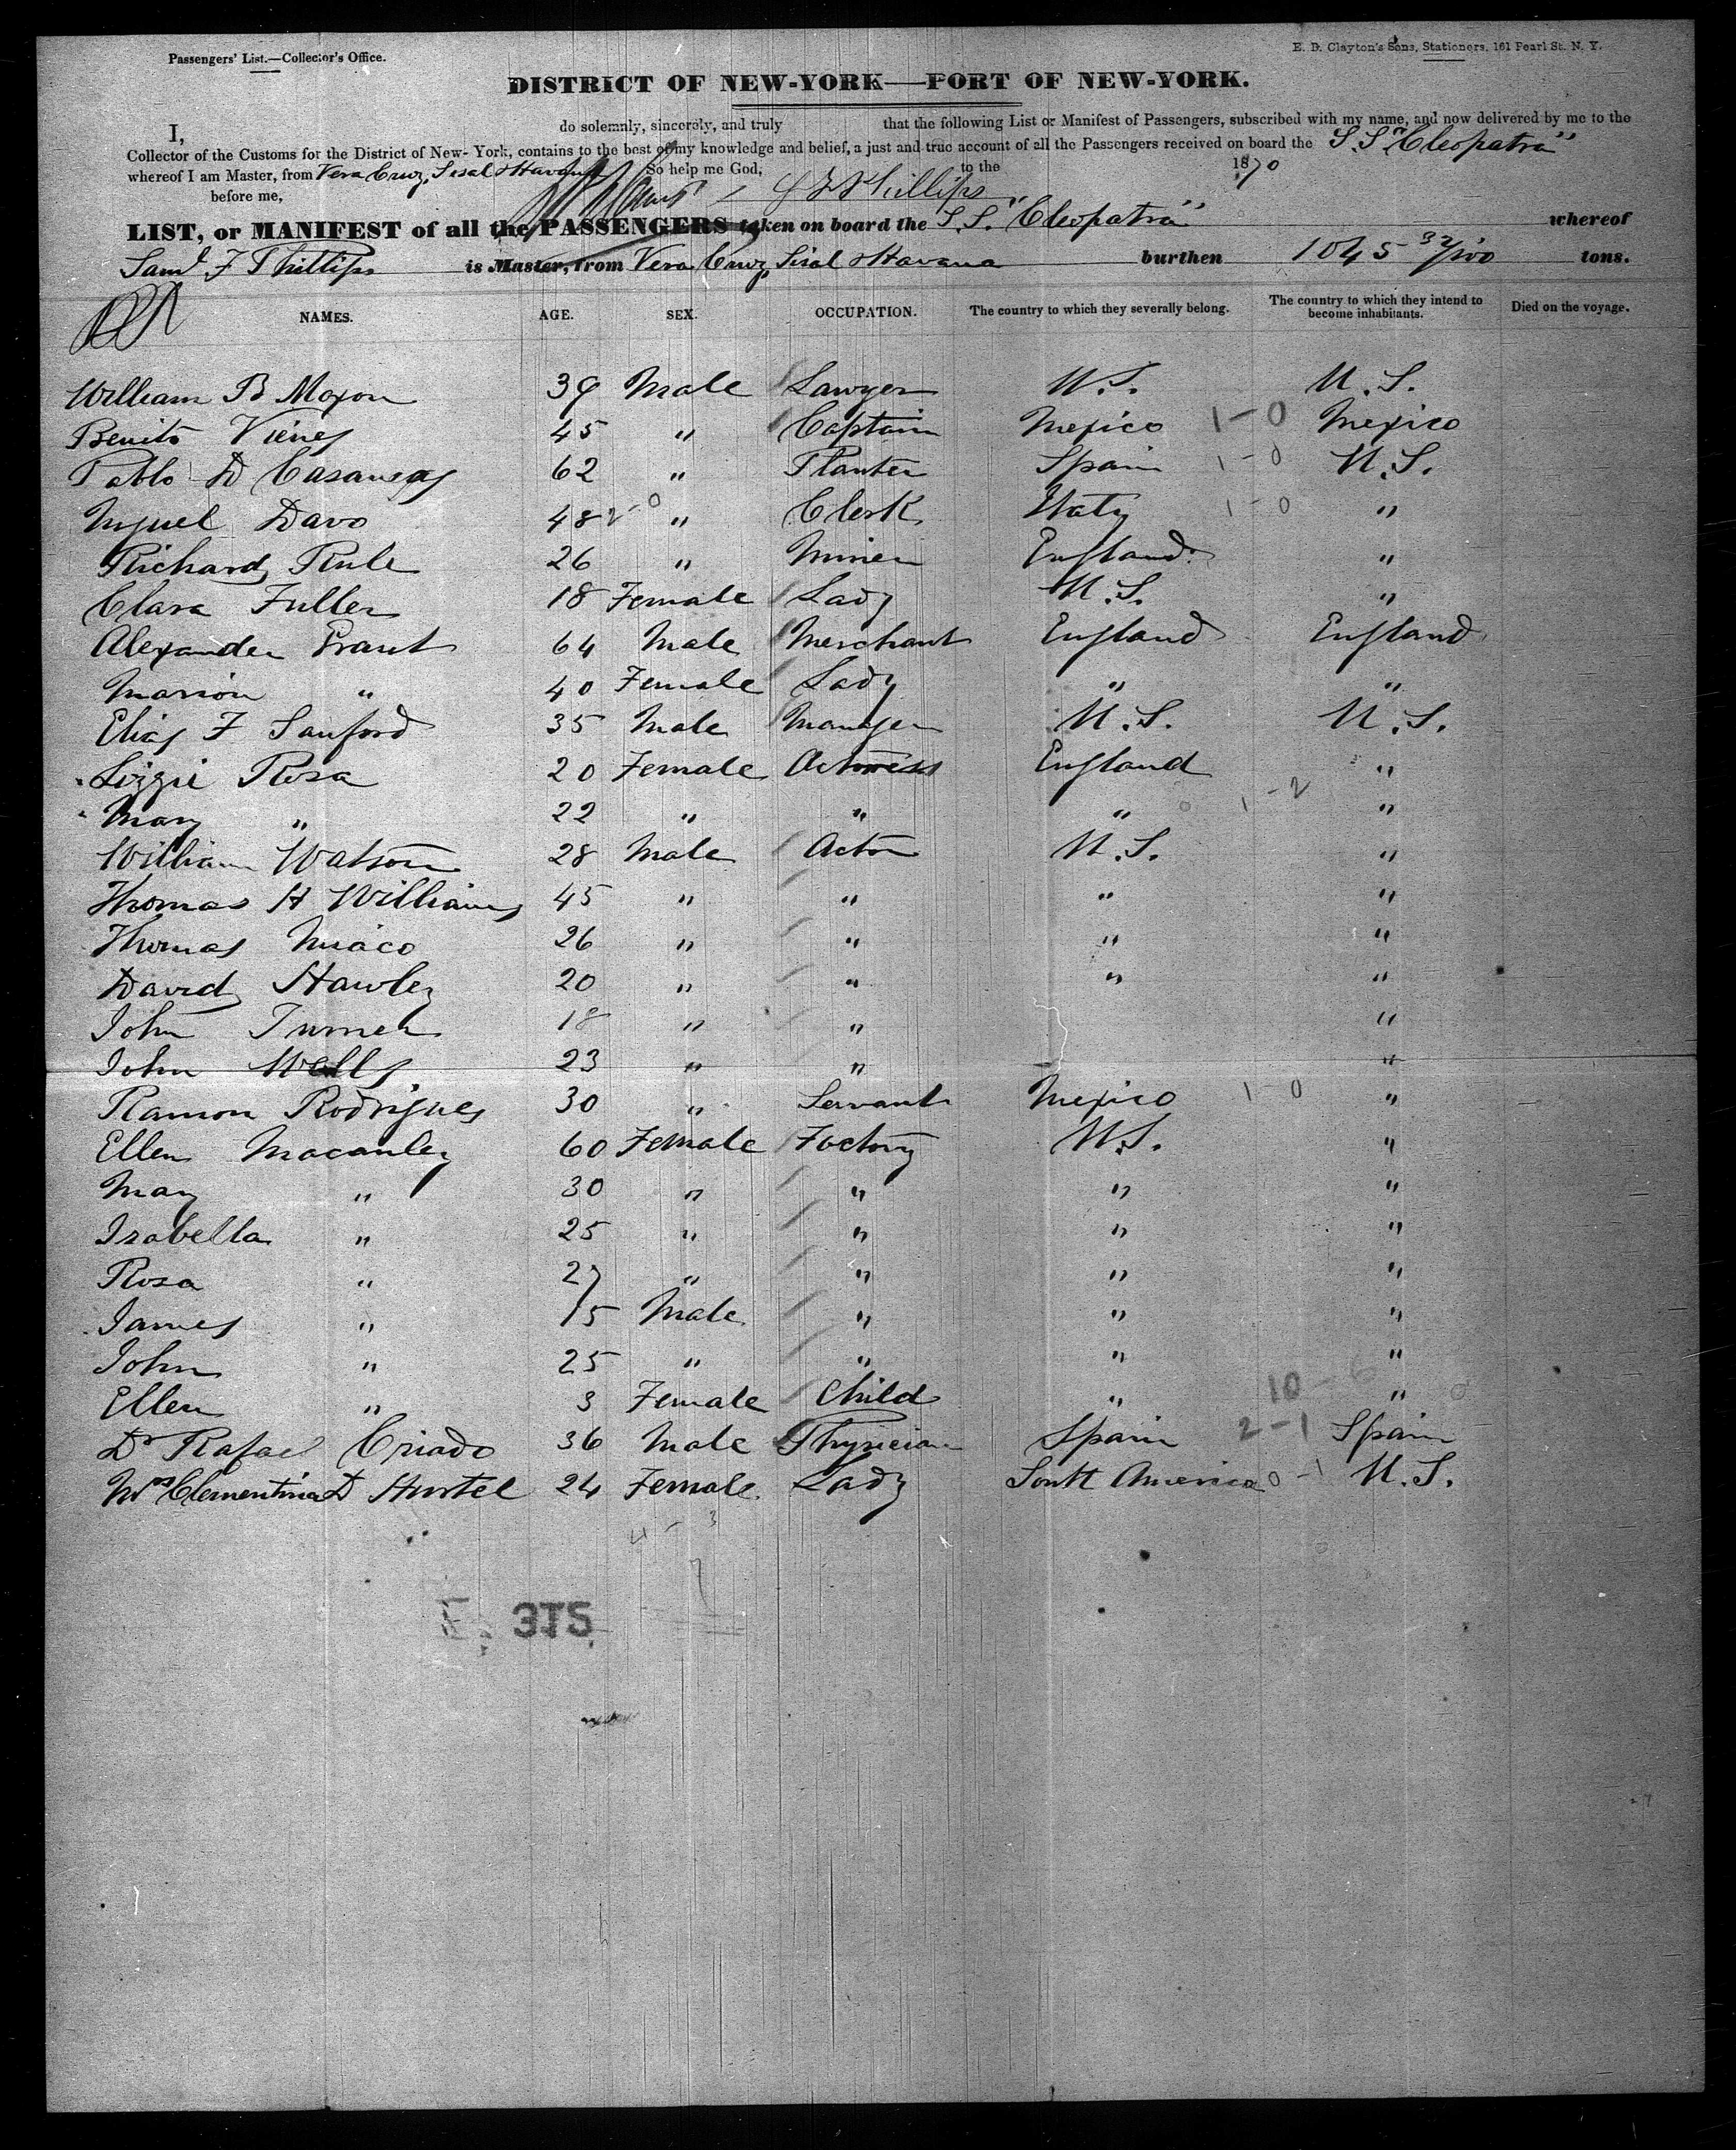 Passengers' List.—Collector's Office.
E. D. Clayton's Sons, Stationers, 161 Pearl St. N. Y.
DISTRICT OF NEW-YORK—PORT OF NEW-YORK.
I, do solemnly, sincerely, and truly that the following List or Manifest of Passengers, subscribed with my name, and now delivered by me to the
Collector of the Customs for the District of New-York, contains to the best of my knowledge and belief, a just and true account of all the Passengers received on board the S. S "Cleopatra"
whereof I am Master, from Vera Cruz, Sisal & Havana So help me God, to the 1870
before me, S F Phillips
LIST, or MANIFEST of all the PASSENGERS taken on board the S. S. "Cleopatra" whereof
Saml F Phillips is Master, from Vera Cruz, Sisal & Havana burthen 1045 32/100 tons.
NAMES. AGE. SEX. OCCUPATION. The country to which they severally belong. The country to which they intend to become inhabitants. Died on the voyage.
William B Moxon 39 Male Lawyer U.S. U.S.
Benito Vieney 45 " Captain Mexico 1-0 Mexico
Pablo D Casanvas 62 " Planter Spain 1-0 U.S.
Davo 48 2-0 " Clerk Italy 1-0 "
Richard Rule 26 " Miner England "
Clara Fuller 18 Female Lady U.S. "
Alexander Grant 64 Male Merchant England England
Marion " 40 Female Lady " "
Elias F Sanford 35 Male Manager U.S. U.S.
Lizzie Rosa 20 Female Actress England "
Mary " 22 " " " 1-2 "
William Watson 28 Male Actor U.S. "
Thomas H Williams 45 " " " "
Thomas Miaco 26 " " " "
David Hawley 20 " " " "
John Turner 18 " " "
John Wells 23 " " "
Ramon Rodrigues 30 " Servant Mexico 1-0 "
Ellen Macauley 60 Female Factory U.S. "
Mary " 30 " " " "
Isabella " 25 " " " "
Rosa " 27 " " " "
James " 15 Male " " "
John " 25 " " " "
Ellen " 3 Female Child " 10-6 "
Dr Rafael Criado 36 Male Physician Spain 2-1 Spain
Mrs Clementina D Hurtel 24 Female Lady South America 0-1 U.S.
4-3
7
315